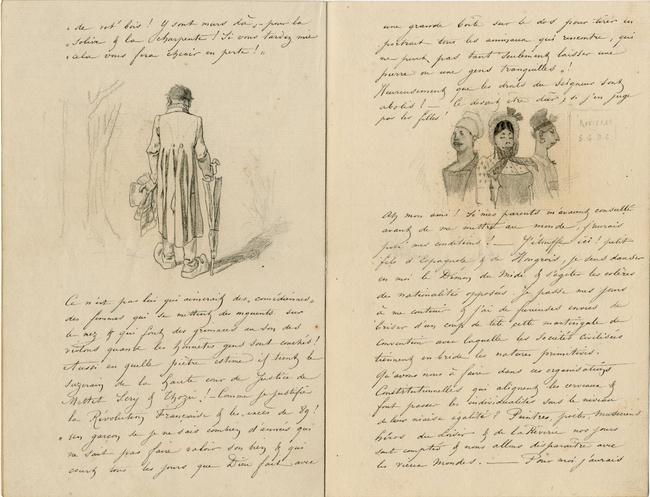 de vot' bois ! Y sont murs pour la
Solive & la Charpente ! Si vous tardez
cela vous fera choir en perte ! "
Ce n'est pas lui qui aimerait des "comédiennes"
des femmes qui se mettent des onguents sur
le nez & qui font des grimaces au son des
violons quand les honnêtes gens sont couchés !
Aussi en quelle piètre estime il tient le
Suzerain de la haute cour de Justice de
Mettet Scry & Thozée ! Comme je justifie
la Révolution Française & les excès de 89 !
" un garçon de je ne sais combien d'années qui
ne sait pas faire valoir son bien & qui
court tous les jours que Dieu fait avec
une grande boîte sur le dos pour tirer en
portrait tous les animaux qui rencontre, qui
ne peut pas tant seulement laisser une
pierre ou une gens tranquilles " !
Heureusement que les droits du Seigneur sont
abolis ! — Ce devait être dur, si j'en juge
par les filles !
S.G.D.G.
Ah mon ami ! Si mes parents m'avaient consulté
avant de me mettre au monde, j'aurais
posé mes conditions ! — J'étouffe ici ! petit
fils d'Espagnols & de Hongrois, je sens danser
en moi le Démon de Midi & s'agiter les colères
des nationalités opposées. Je passe mes jours
à me contenir & j'ai de furieuses envies de
briser d'un coup de tête cette martingale de
convention avec laquelle les Sociétés Civilisées
tiennent en bride les natures primitives.
Qu'avons nous à faire dans ces organisations
Constitutionnelles qui alignent les cerveaux &
font passer les individualités sous le niveau
de leur niaise égalité ? Peintres, poètes, musiciens
héros du Loisir & de la Rêverie nos jours
sont comptés & nous allons disparaître avec
les vieux Mondes. — Pour moi j'aurais